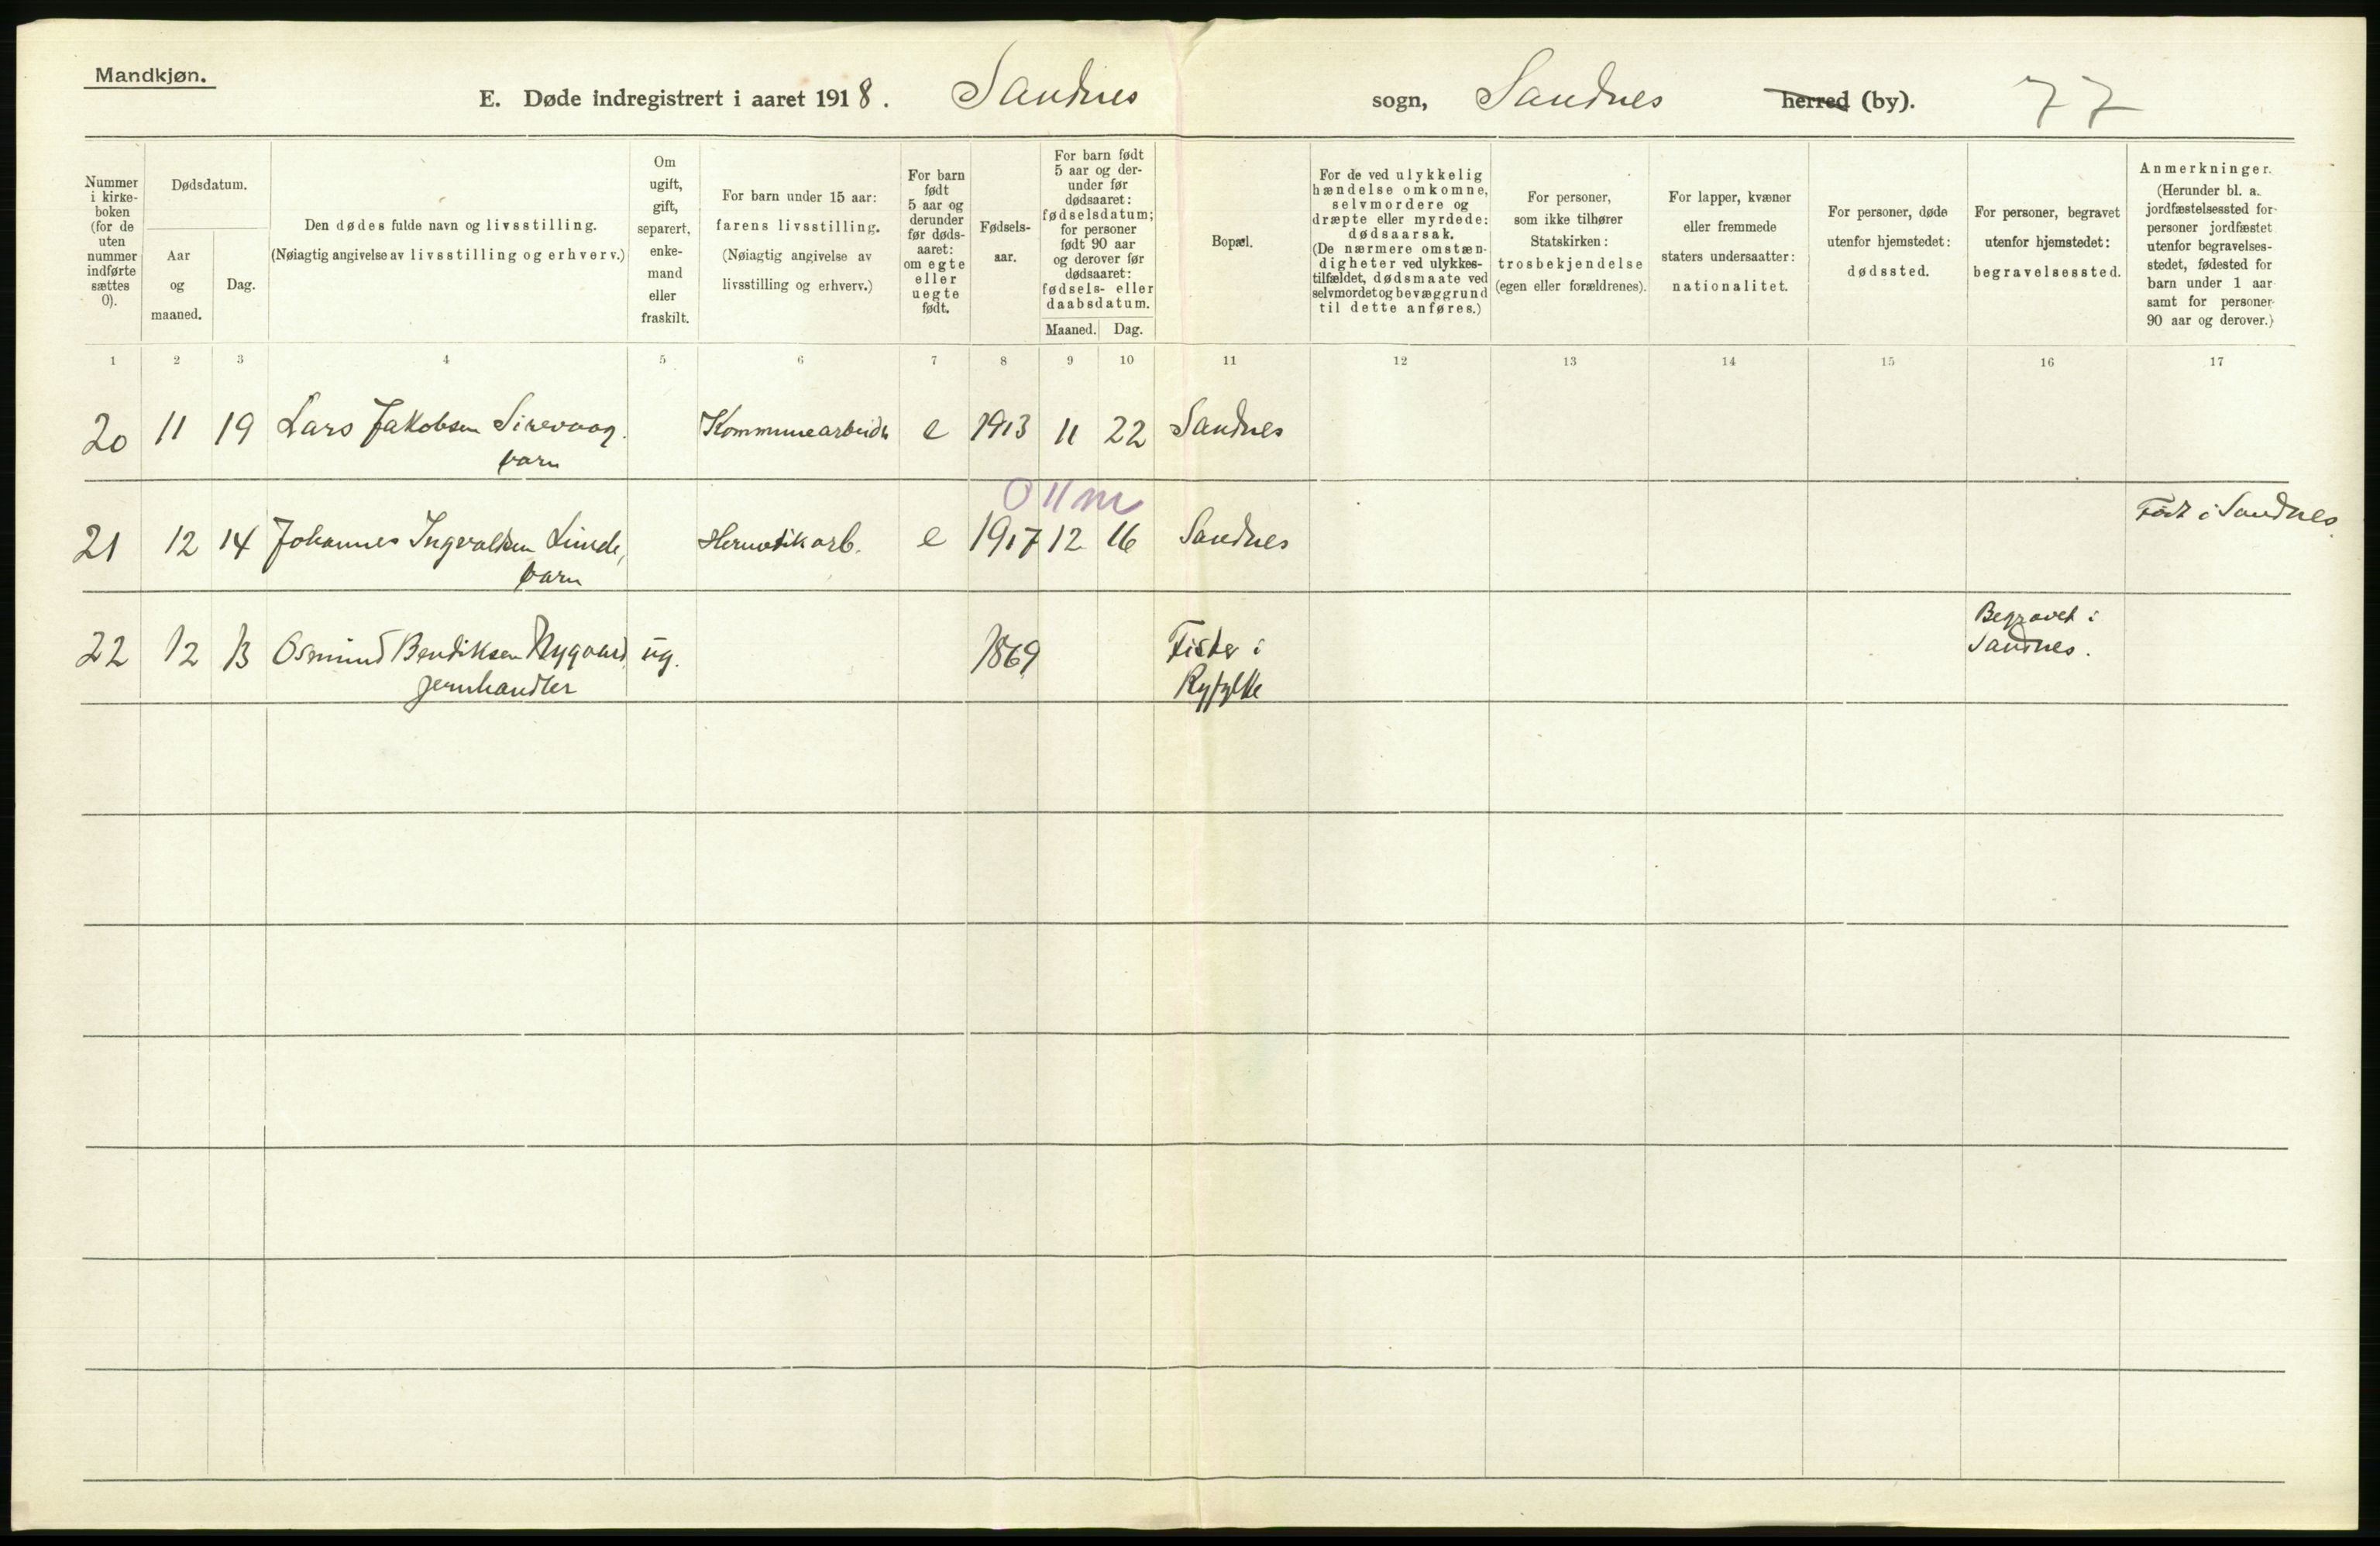 Mandkjøn.
E. Døde indregistrert i aaret 1918. Sandnes sogn, Sandnes herred (by). 77
Nummer i kirke-boken (for de uten nummer indførte sættes 0).
Dødsdatum.
Aar og maaned.
Dag.
Den dødes fulde navn og livsstilling.
(Nøiagtig angivelse av livsstilling og erhverv.)
Om ugift, gift, separert, enke-mand eller fraskilt.
For barn under 15 aar:
farens livsstilling.
(Nøiagtig angivelse av livsstilling og erhverv.)
For barn født 5 aar og derunder før døds-aaret: om egte eller uegte født.
Fødsels-aar.
For barn født 5 aar og der-under før dødsaaret: fødselsdatum; for personer født 90 aar og derover før dødsaaret: fødsels- eller daabsdatum.
Maaned. Dag.
Bopæl.
For de ved ulykkelig hændelse omkomne, selvmordere og dræpte eller myrdede: dødsaarsak.
(De nærmere omstæn-digheter ved ulykkes-tilfældet, dødsmaate ved selvmordet og bevæggrund til dette anføres.)
For personer, som ikke tilhører Statskirken: trosbekjendelse (egen eller forældrenes).
For lapper, kvæner eller fremmede staters undersaatter: nationalitet.
For personer, døde utenfor hjemstedet: dødssted.
For personer, begravet utenfor hjemstedet: begravelsessted.
Anmerkninger.
(Herunder bl. a. jordfæstelsessted for personer jordfæstet utenfor begravelses-stedet, fødested for barn under 1 aar samt for personer 90 aar og derover.)
1 2 3 4 5 6 7 8 9 10 11 12 13 14 15 16 17
20 11 19 Lars Jakobsen Sirevaag. Kommunearbeider e 1913 11 22 Sandnes
barn
0 11 m
21 12 14 Johannes Ingvaldsen Linde, Hermetikarb. e 1917 12 16 Sandnes Født i Sandnes.
barn
22 12 13 Osmund Bendiksen Nygaard, ug. 1869 Fister i Begravet i
jernhandler Ryfylke Sandnes.